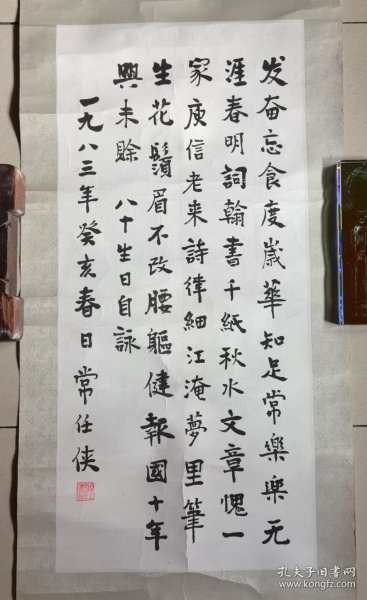 发奋忘食度歲華知足常樂樂无
涯春明詞翰書千紙秋水文章愧一
家庾信老来詩律細江淹夢里筆
生花鬚眉不改腰軀健報國十年
興未賖 八十生日自詠
一九八三年癸亥春日常任侠
孔夫子旧书网
www.kongfz.com